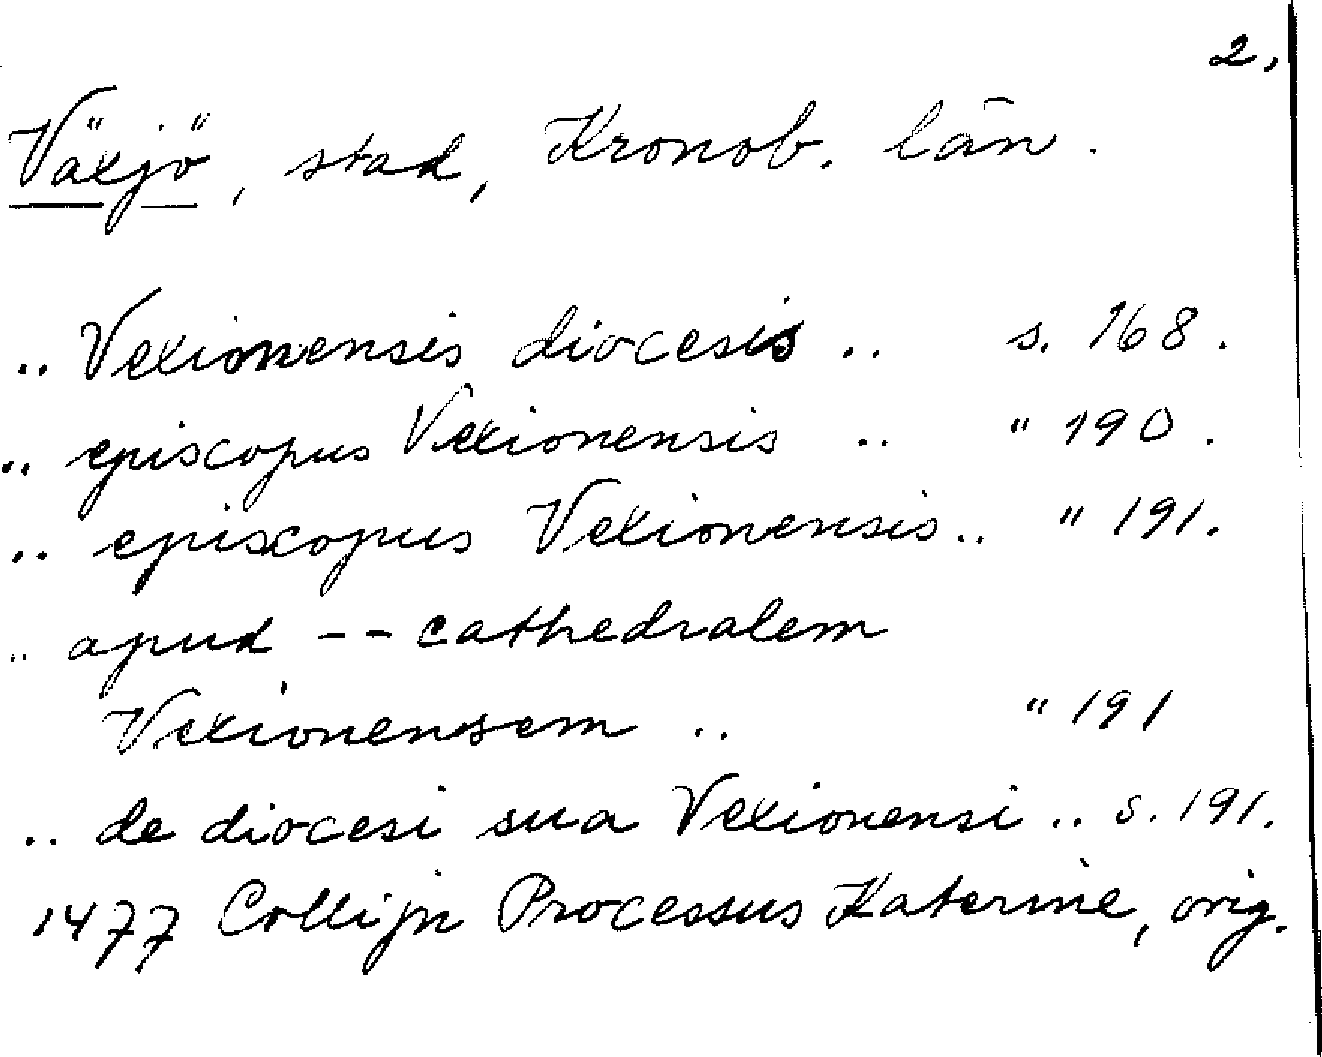 2,
Växjö, stad, Kronob. län.
.. Vexionensis diocesis .. s. 168.
.. episcopus Vexionensis .. " 190.
.. episcopus Vexionensis .. " 191.
.. apud -- cathedralem
Vexionensem .. " 191
.. de diocesi sua Vexionensi .. s. 191.
1477 Collijn Processus Katerine, orig.